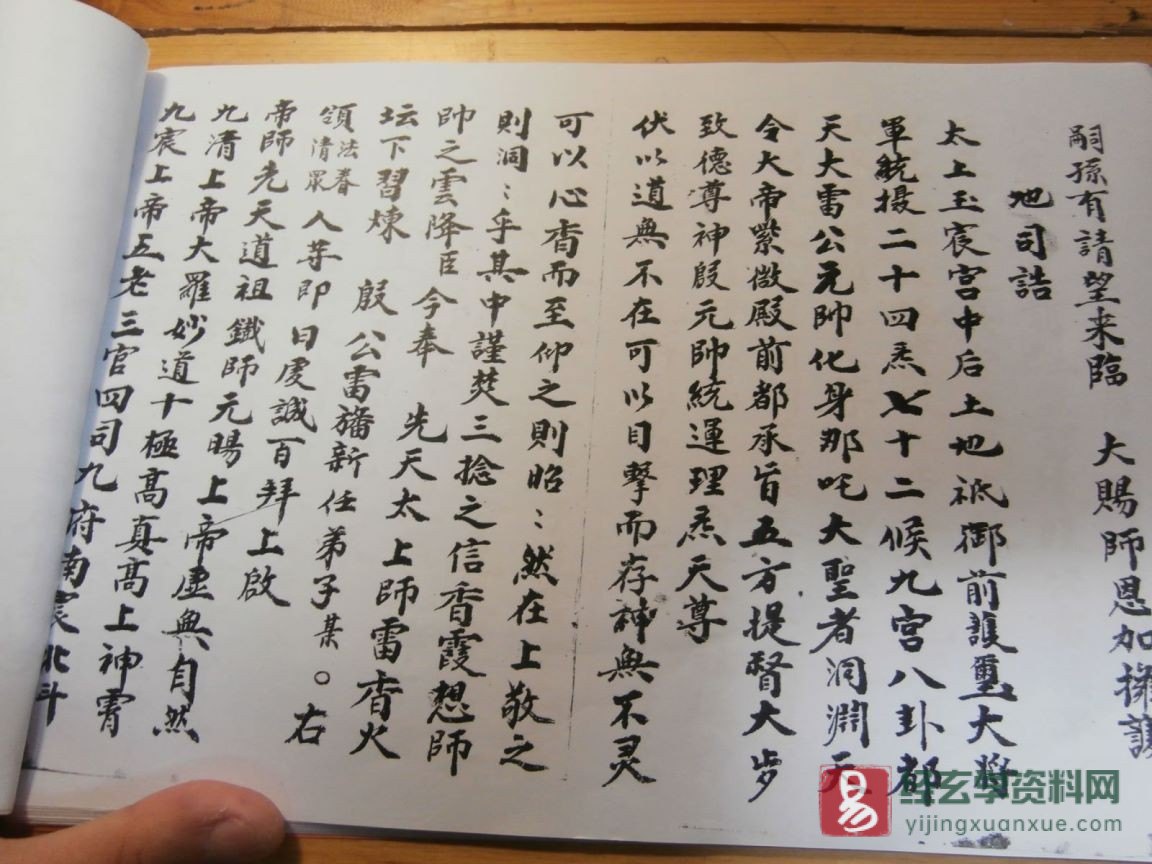 嗣孫有請望来臨 大賜師恩加擁護
地司誥
太上玉宸宫中后土地祇御前護璽大將
軍統摄二十四炁七十二候九宫八卦都
天大雷公元帅化身那吒大聖者洞淵天
令大帝紫微殿前都承旨五方提督大步
致德尊神殷元帥統運理炁天尊
伏以道無不在可以目擊而存神無不灵
可以心香而至仰之則昭:然在上敬之
則洞:乎其中謹焚三捻之信香霞想師
帥之雲降臣今奉 先天太上師雷香火
坛下習煉 殷公雷旛新任弟子某。右
領法眷清眾人等即日虔誠百拜上啟
帝師先天道祖鐵師元暘上帝虚無自然
九清上帝大羅妙道十極高真高上神霄
九宸上帝五老三官四司九府南宸北斗
易
经玄学资料网
yijingxuanxue.com